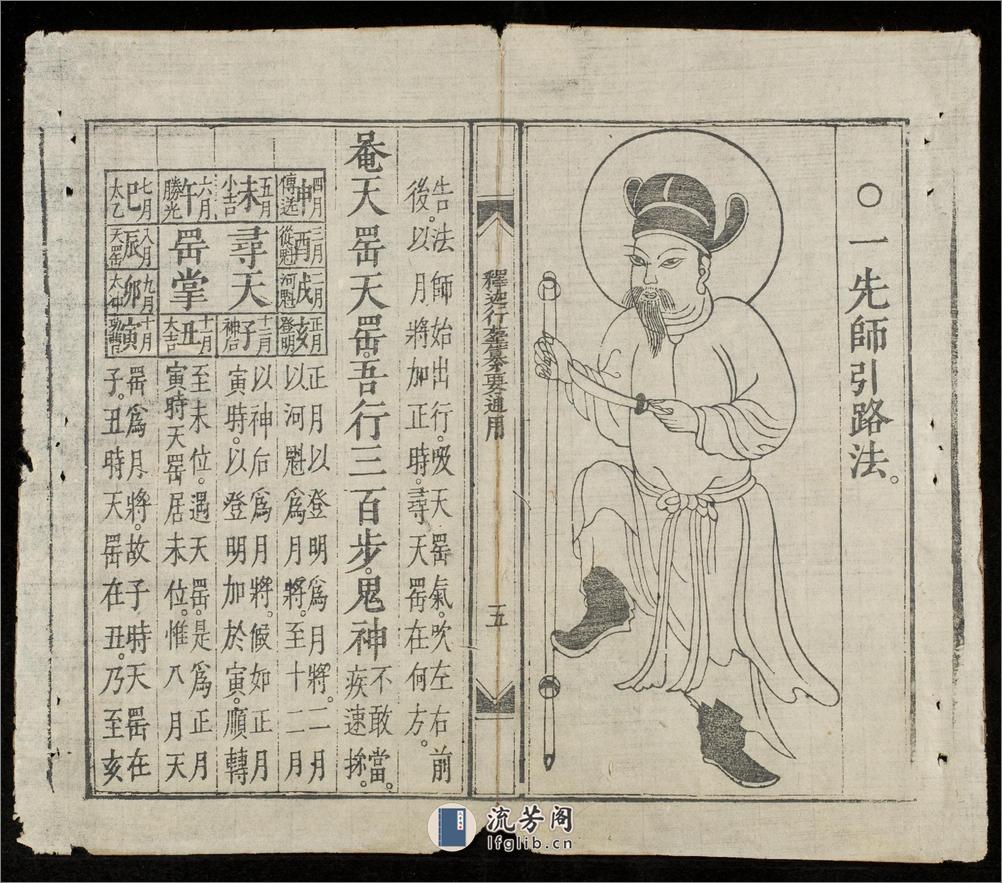 ○一先師引路法。
釋迦行纂要通用
五
告法師始出行。吸天罡氣。吹左右前
後。以月將加正時。尋天罡在何方。
天罡天罡。吾行三百步。鬼神
不敢當。
疾速
四月 申 傳送
五月 未 小吉
六月 午 勝光
七月 巳 太乙
三月 酉 從魁
尋天
罡掌
八月 辰 天罡
二月 戌 河魁
九月 卯 太冲
正月 亥 登明
十二月 子 神后
十一月 丑 大吉
十月 寅 功曹
正月以登明爲月將。二月
以河魁爲月將。至十二月
以神后爲月將。候如正月
寅時。以登明加於寅。順轉
至未位。遇天罡。是爲正月
寅時天罡居未位。惟八月天
罡爲月將。故子時天罡在
子。丑時天罡在丑。乃至亥
流芳阁
lfglib.cn